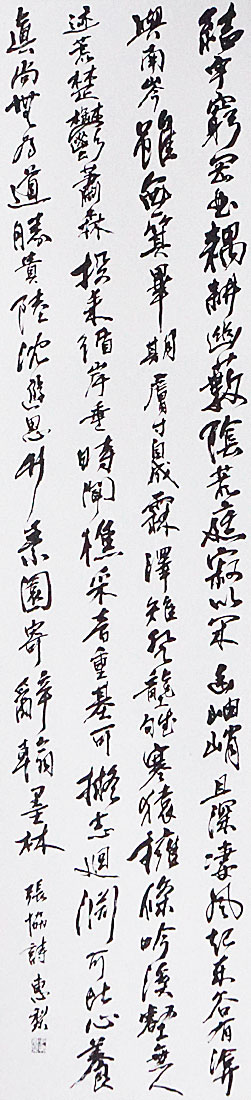 結宇窮岡曲耦耕幽藪陰荒庭寂以閑幽岫峭且深凄風起東谷有渰
興南岑雖無箕畢期膚寸自成霖澤雉登壟雊寒猿擁條吟溪壑無人
迹荒楚鬱蕭森投耒循岸垂時聞樵采音重基可擬志迴淵可比心養
眞尚無爲道勝貴陸沈遊思竹素園寄辭翰墨林 張協詩 惠